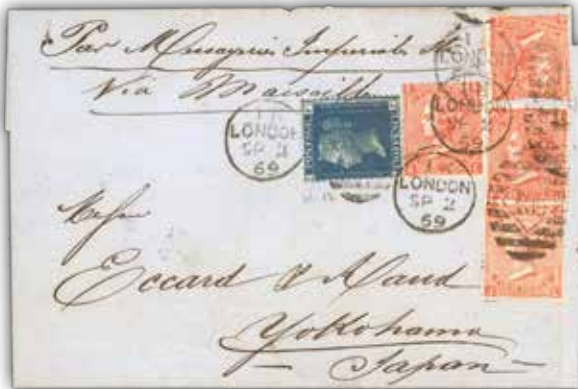 Par Messageries Imperiales
Via Marseille
LONDON
LONDON
69
LONDON
SP 2
69
LONDON
SP 2
69
Messrs
Eccard & Maud
Yokohama
Japan